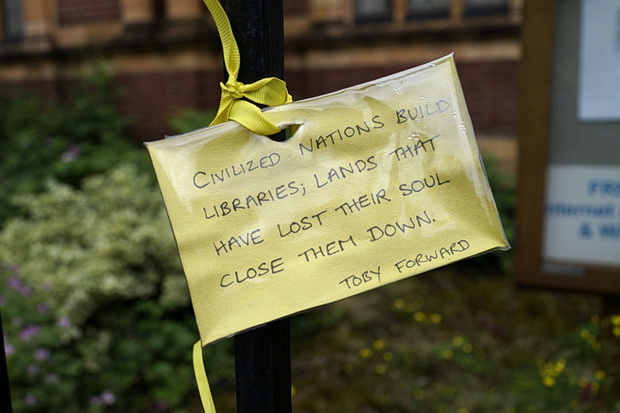 CIVILIZED NATIONS BUILD
LIBRARIES; LANDS THAT
HAVE LOST THEIR SOUL
CLOSE THEM DOWN.
TOBY FORWARD
FR
nternet
& W